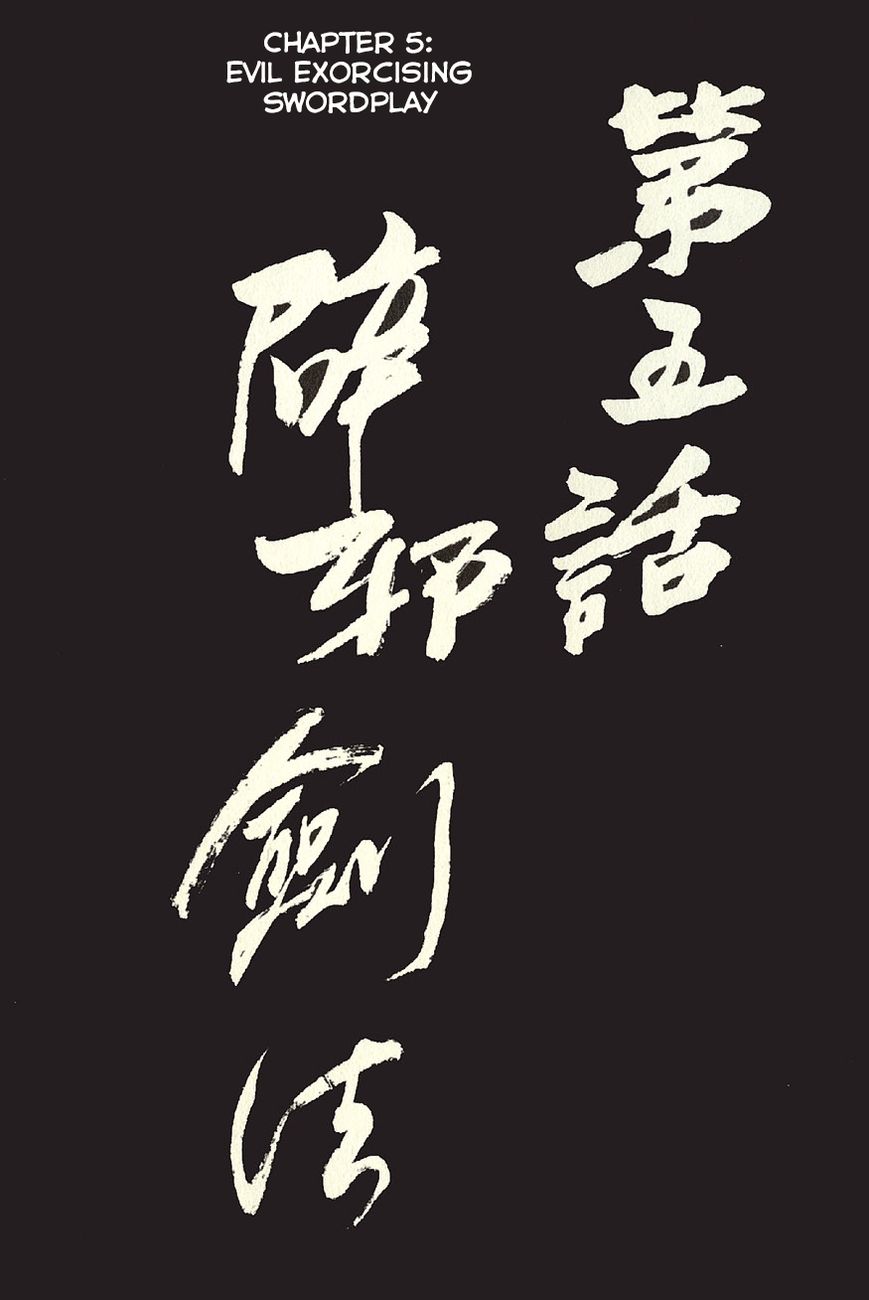 CHAPTER 5:
EVIL EXORCISING
SWORDPLAY
第五話
辟邪劍法